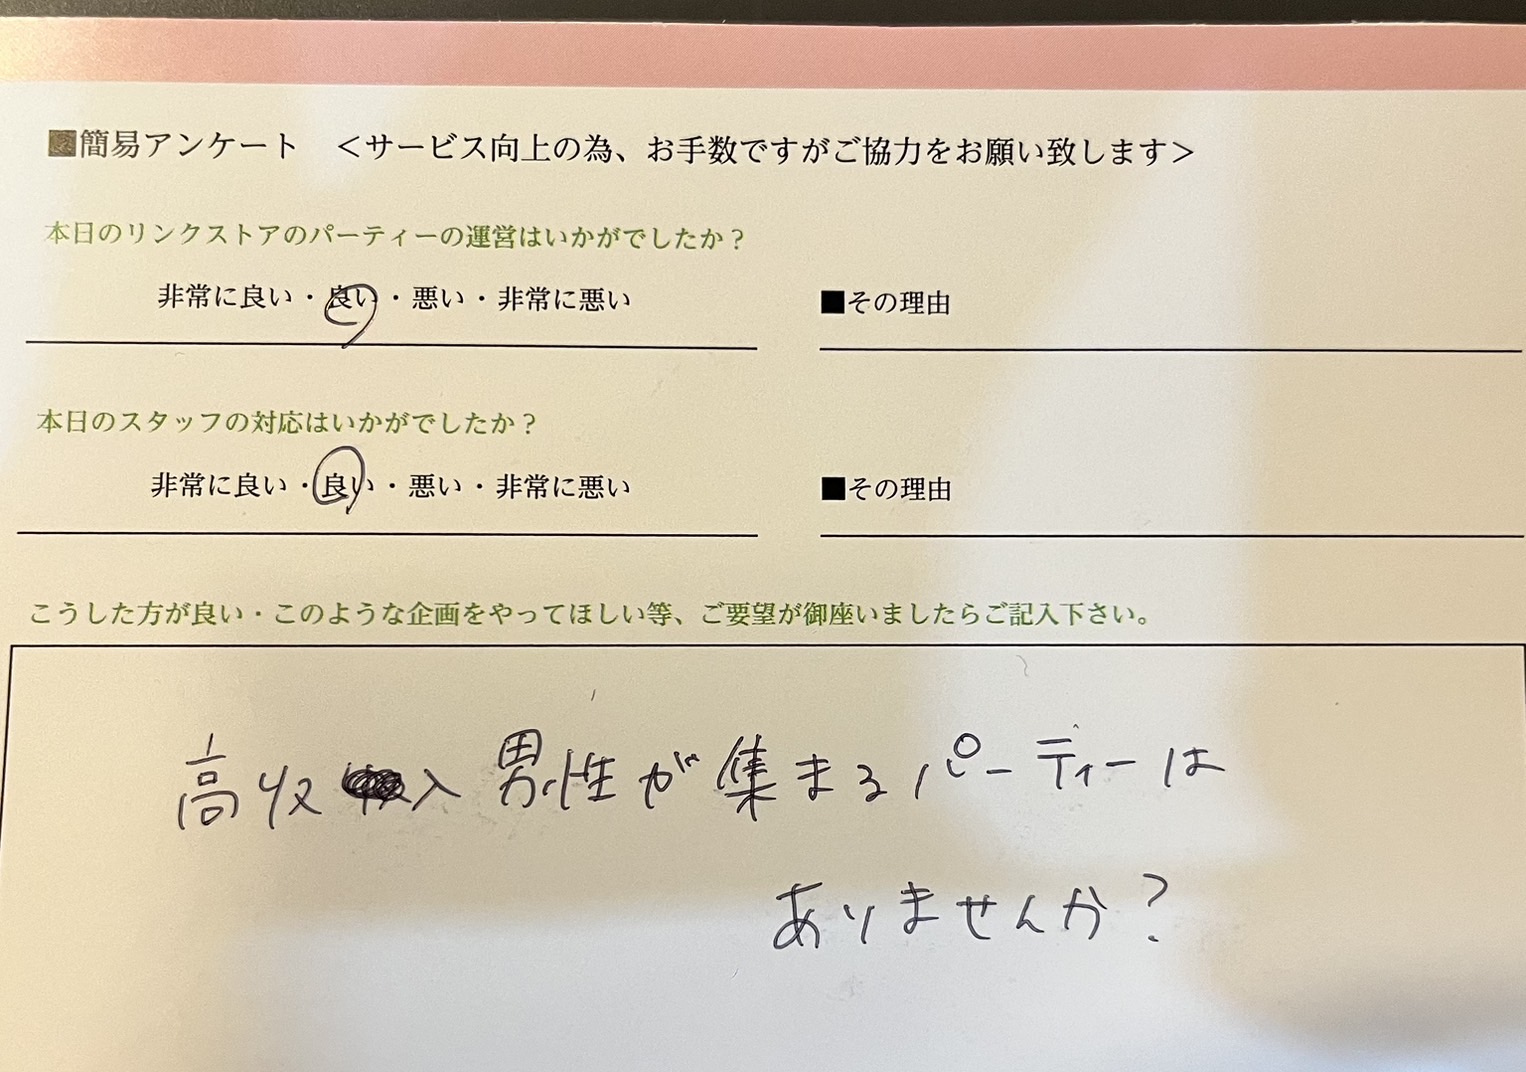 ■簡易アンケート　＜サービス向上の為、お手数ですがご協力をお願い致します＞
本日のリンクストアのパーティーの運営はいかがでしたか？
非常に良い・良い・悪い・非常に悪い
■その理由
本日のスタッフの対応はいかがでしたか？
非常に良い・良い・悪い・非常に悪い
■その理由
こうした方が良い・このような企画をやってほしい等、ご要望が御座いましたらご記入下さい。
高収入男性が集まるパーティーは
ありませんか？